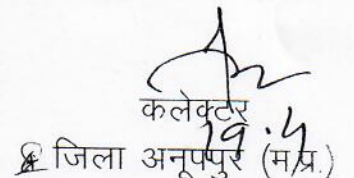 कलेक्टर
जिला अनूपपुर (म.प्र.)